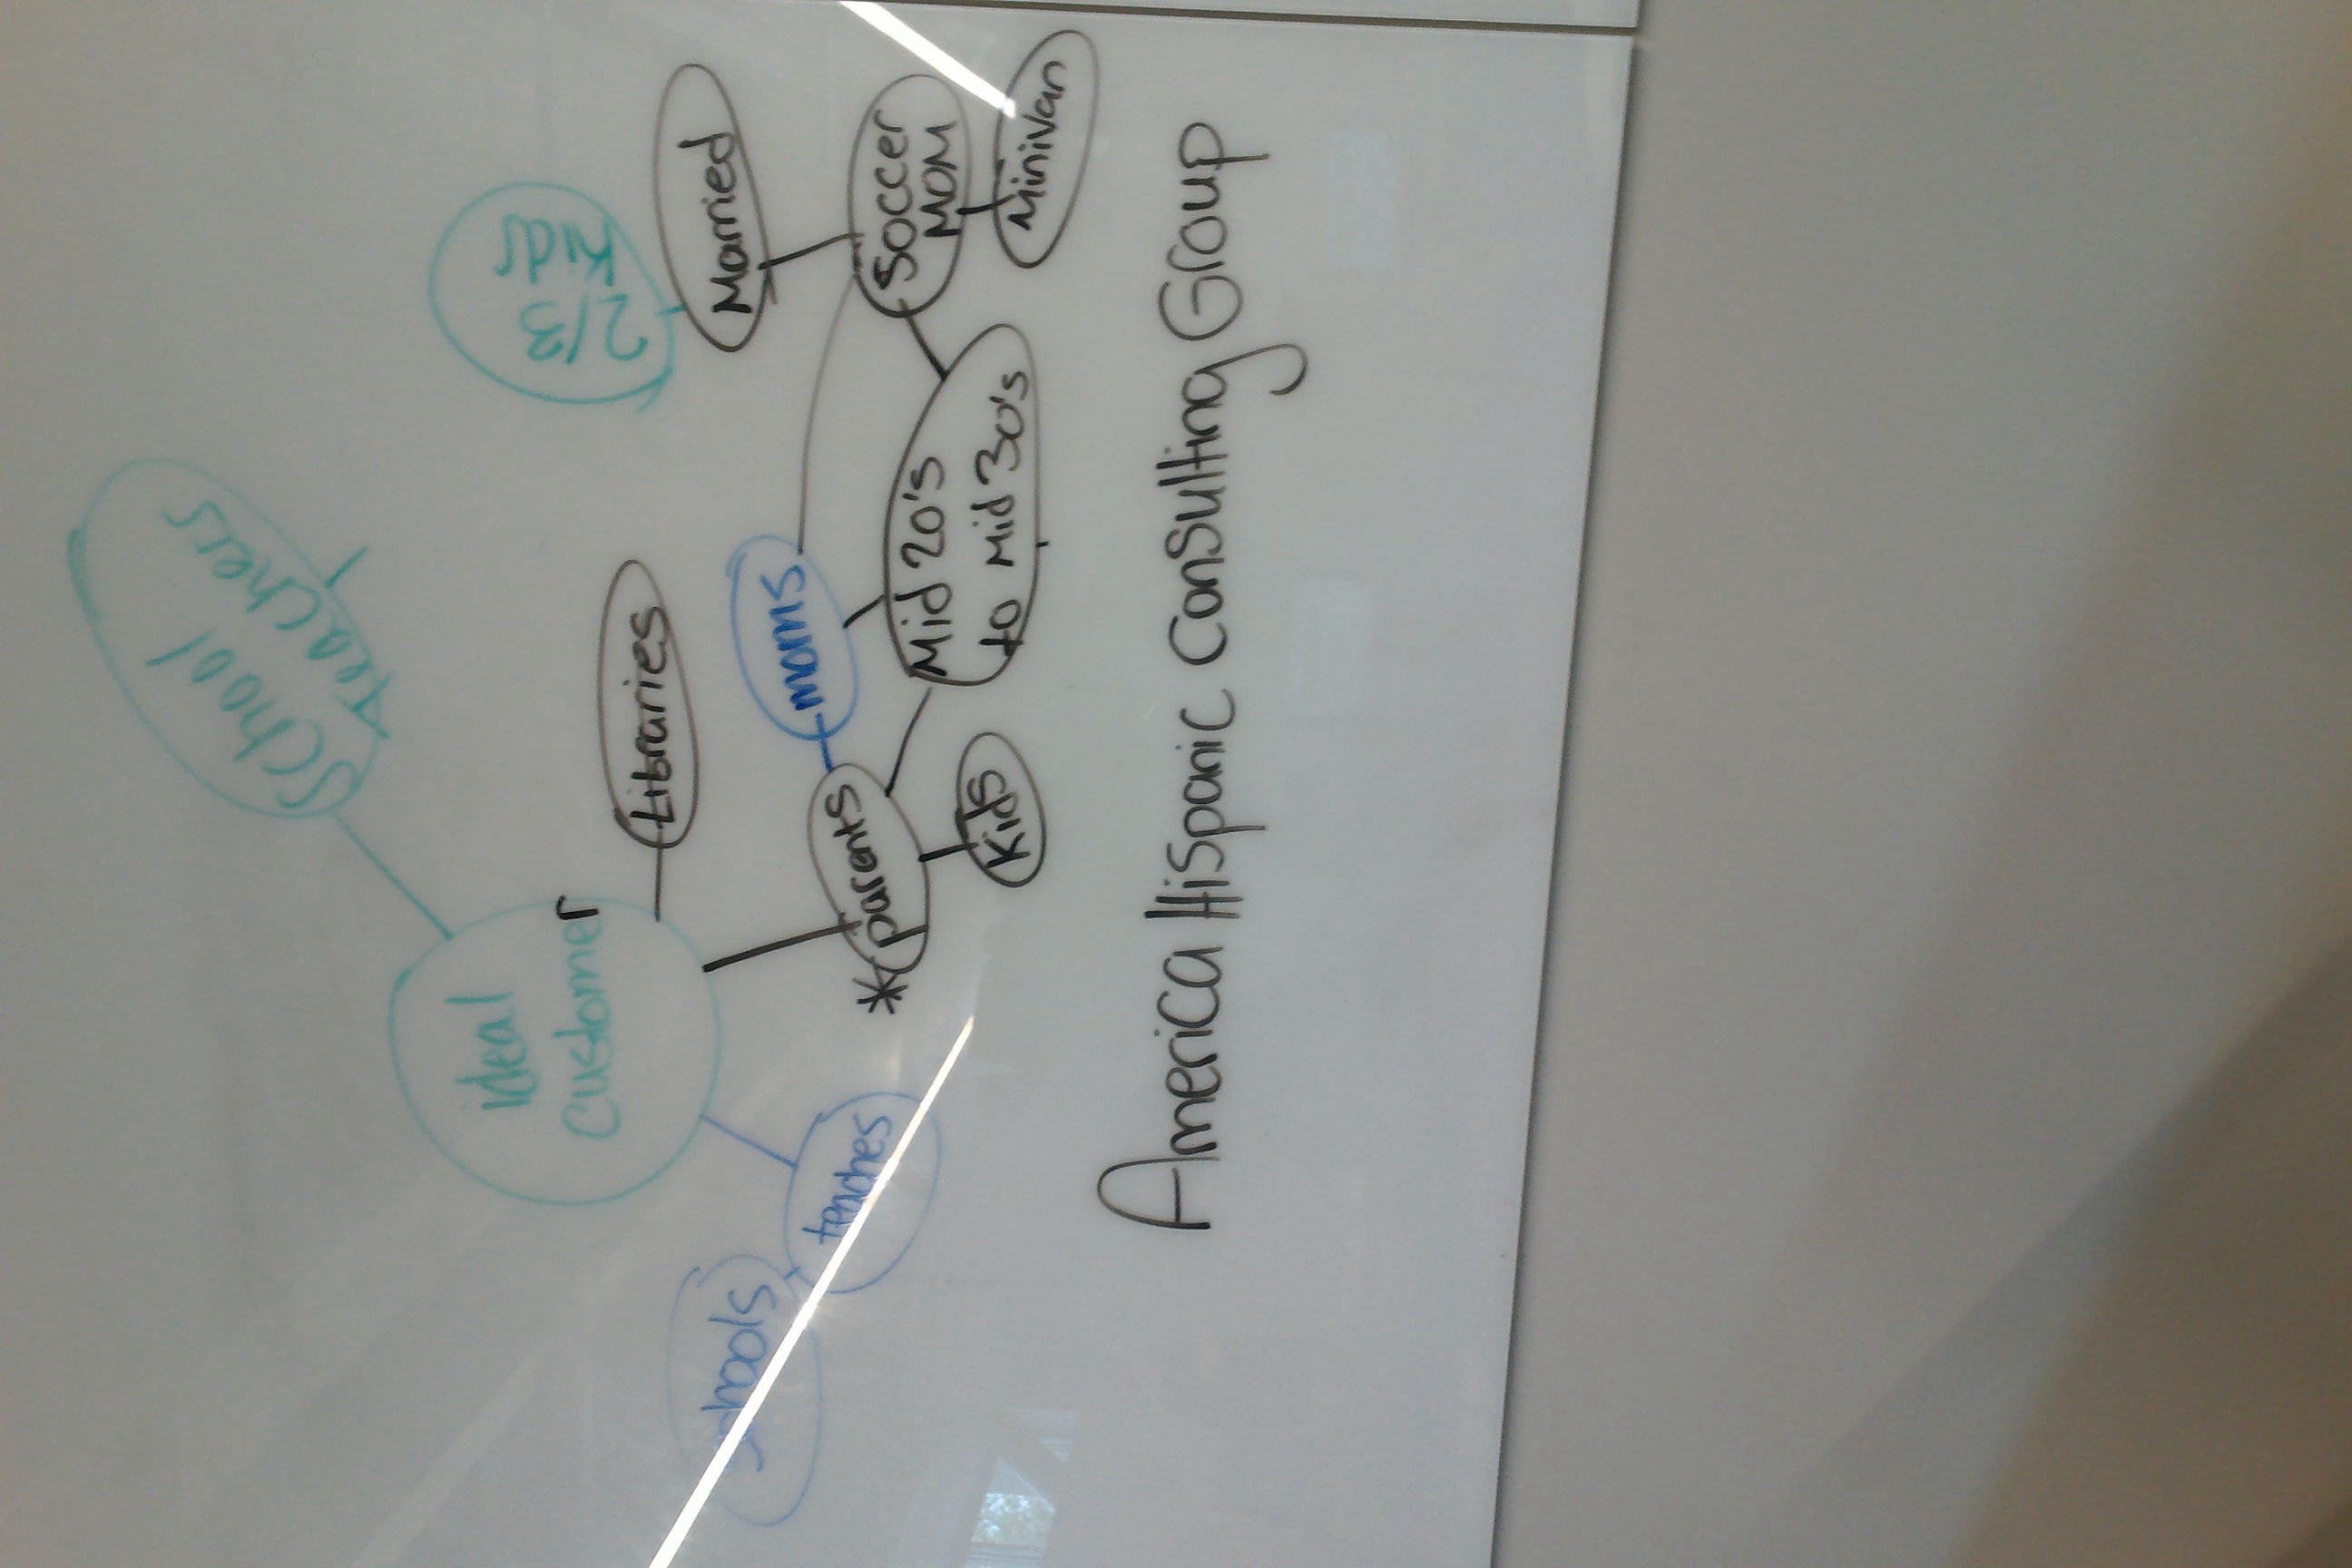 School
Teachers
ideal
customer
2/3
kids
Libraries
Married
schools
moms
teaches
* parents
Soccer
MOM
Mid 20's
to Mid 30's
Kids
Minivan
America Hispanic Consulting Group